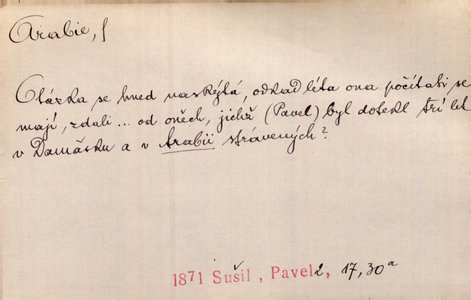 Arabie, f
Otázka se hned naskýtá, odkad léta ona počítati se
mají, zdali ... od oněch, jichž (Pavel) byl dotekl tří let
v Damašku a v Arabii strávených?
1871 Sušil, Pavel 2, 17,30a